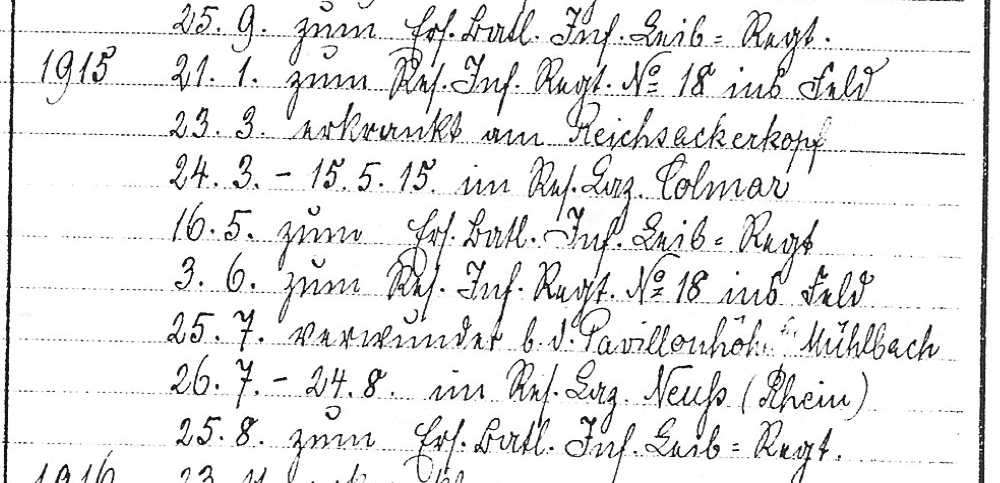 25. 9. zum Ers. Batl. Inf. Leib= Regt.
1915 21. 1. zum Res. Inf. Regt. No 18 ins Feld
23. 3. erkrankt am Reichsackerkopf
24. 3. - 15. 5. 15. im Res. Laz. Colmar
16. 5. zum Ers. Batl. Inf. Leib= Regt
3. 6. zum Res. Inf. Regt. No 18 ins Feld
25. 7. verwundet b. d. Pavillonhöhe Mühlbach
26. 7. - 24. 8. im Res. Laz. Neuß (Rhein)
25. 8. zum Ers. Batl. Inf. Leib= Regt.
1916 23.